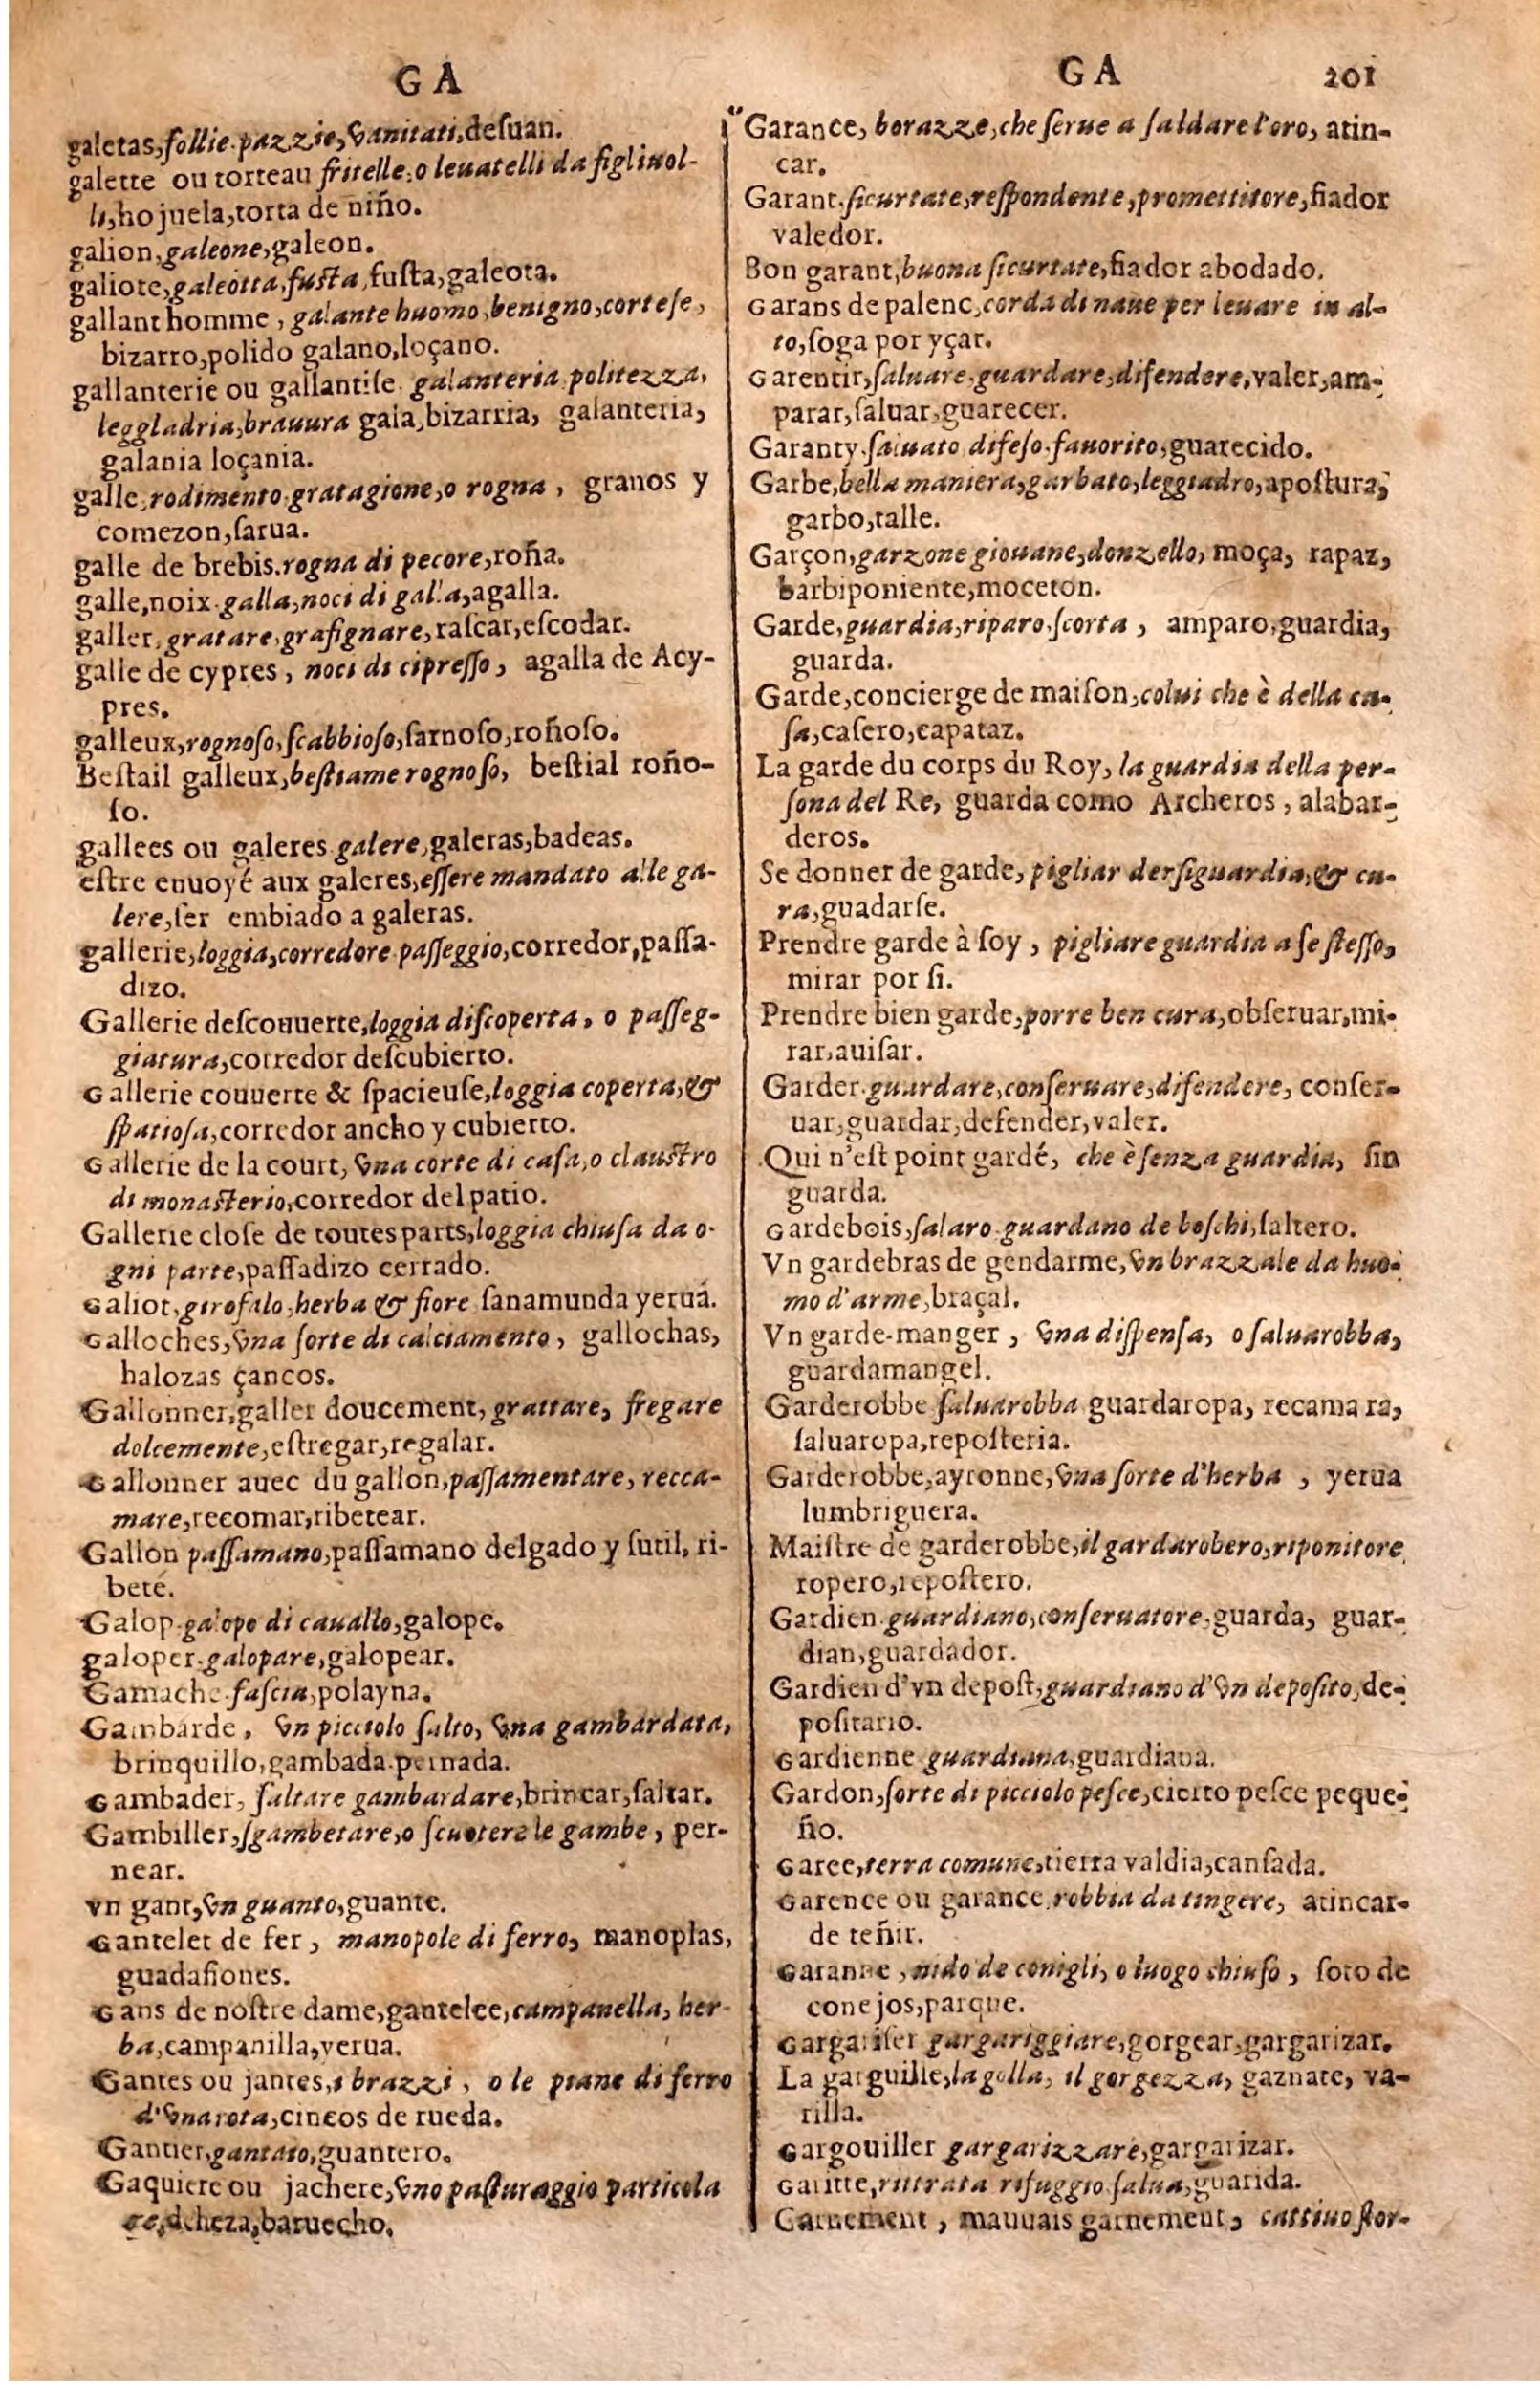 G A
galetas,follie.pazzie,vanitati,deſuan.
galette ou torteau fritelle,o leuatelli da figliuol-
li,hojuela,torta de niño.
galion,galeone,galeon.
galiote,galeotta,fuſta,fuſta,galeota.
gallant homme, galante huomo,benigno,corteſe,
bizarro,polido galano,loçano.
gallanterie ou gallantiſe. galanteria politezza,
leggladria,brauura gala,bizarria, galanteria,
galania loçania.
galle,rodimento.gratagione,o rogna, granos y
comezon,ſarua.
galle de brebis.rogna di pecore,roña.
galle,noix.galla,noci di galla,agalla.
galler,gratare,grafignare,raſcar,eſcodar.
galle de cypres, noci di cipreſſo, agalla de Acy-
pres.
galleux,rognoſo,ſcabbioſo,ſarnoſo,roñoſo.
Beſtail galleux,beſtiame rognoſo, beſtial roño-
ſo.
gallees ou galeres.galere,galeras,badeas.
eſtre enuoyé aux galeres,eſſere mandato alle ga-
lere,ſer embiado a galeras.
gallerie,loggia,corredore.paſſeggio,corredor,paſſa-
dizo.
Gallerie deſcouuerte,loggia diſcoperta, o paſſeg-
giatura,corredor deſcubierto.
Gallerie couuerte & ſpacieuſe,loggia coperta,&
ſpatioſa,corredor ancho y cubierto.
Gallerie de la court, vna corte di caſa,o clauſtro
di monaſterio,corredor del patio.
Gallerie cloſe de toutes parts,loggia chiuſa da o-
gni parte,paſſadizo cerrado.
Galiot,girofalo,herba & fiore ſanamunda yerua.
Galloches,vna ſorte di calciamento, gallochas,
halozas çancos.
Gallonner,galler doucement,grattare, fregare
dolcemente,eſtregar,regalar.
Gallonner auec du gallon,paſſamentare, recca-
mare,recomar,ribetear.
Gallon paſſamano,paſſamano delgado y ſutil, ri-
bete.
Galop.galopo di cauallo,galope.
galoper.galopare,galopear.
Gamache.faſcia,polayna.
Gambarde, vn picciolo ſalto, vna gambardata,
brinquillo,gambada.pernada.
Gambader, ſaltare gambardare,brincar,ſaltar.
Gambiller,ſgambetare,o ſcuotere le gambe, per-
near.
vn gant,vn guanto,guante.
Gantelet de fer, manopole di ferro, manoplas,
guadafiones.
Gans de noſtre dame,gantelee,campanella, her-
ba,campanilla,verua.
Gantes ou jantes,i brazzi, o le piane di ferro
d'vna rota,cincos de rueda.
Gantier,gantaio,guantero.
Gaquiere ou jachere,vno paſturaggio particola
ge,deheza,baruecho.
G A 201
Garance, borazze,che ſerue a ſaldare l'oro, atin-
car.
Garant.ſicurtate,reſpondente,promettitore,fiador
valedor.
Bon garant,buona ſicurtate,fiador abodado.
Garans de palenc,corda di naue per leuare in al-
to,ſoga por yçar.
Garentir,ſaluare.guardare,difendere,valer,am-
parar,ſaluar,guarecer.
Garanty.ſaluato difeſo.fauorito,guarecido.
Garbe,bella maniera,garbato,leggiadro,apoſtura,
garbo,talle.
Garçon,garzone giouane,donzello, moça, rapaz,
barbiponiente,moceton.
Garde,guardia,riparo.ſcorta, amparo,guardia,
guarda.
Garde,concierge de maiſon,colui che è della ca-
ſa,caſero,capataz.
La garde du corps du Roy, la guardia della per-
ſona del Re, guarda como Archeros, alabar-
deros.
Se donner de garde, pigliar derſiguardia,& cu-
ra,guadarſe.
Prendre garde à ſoy, pigliare guardia a ſe ſteſſo,
mirar por ſi.
Prendre bien garde,porre ben cura,obſeruar,mi-
rar,auiſar.
Garder.guardare,conſeruare,difendere, conſer-
uar,guardar,defender,valer.
Qui n'eſt point gardé, che è ſenza guardia, ſin
guarda.
Gardebois,ſalaro.guardano de boſchi,ſaltero.
Vn gardebras de gendarme,vn brazzale da huo-
mo d'arme,braçal.
Vn garde-manger, vna diſpenſa, o ſaluarobba,
guardamangel.
Garderobbe ſaluarobba guardaropa, recama ra,
ſaluaropa,repoſteria.
Garderobbe,ayronne,vna ſorte d'herba, yerua
lumbriguera.
Maiſtre de garderobbe,il gardarobero,riponitore
ropero,repoſtero.
Gardien.guardiano,conſeruatore,guarda, guar-
dian,guardador.
Gardien d'vn depoſt,guardiano d'vn depoſito,de-
poſitario.
Gardienne guardiana,guardiana.
Gardon,ſorte di picciolo peſce,cierto peſce peque-
ño.
Garee,terra comune,tierra valdia,canſada.
Garence ou garance.robbia da tingere, atincar-
de teñir.
Garanne, nido de conigli, o luogo chiuſo, ſoto de
conejos,parque.
Gargariſer gargariggiare,gorgear,gargarizar.
La garguille,la golla, il gorgezza, gaznate, va-
rilla.
Gargouiller gargarizzare,gargarizar.
Garitte,ritrata rifuggio.ſalua,guarida.
Garnement, mauuais garnement, cattiuo ſtor-